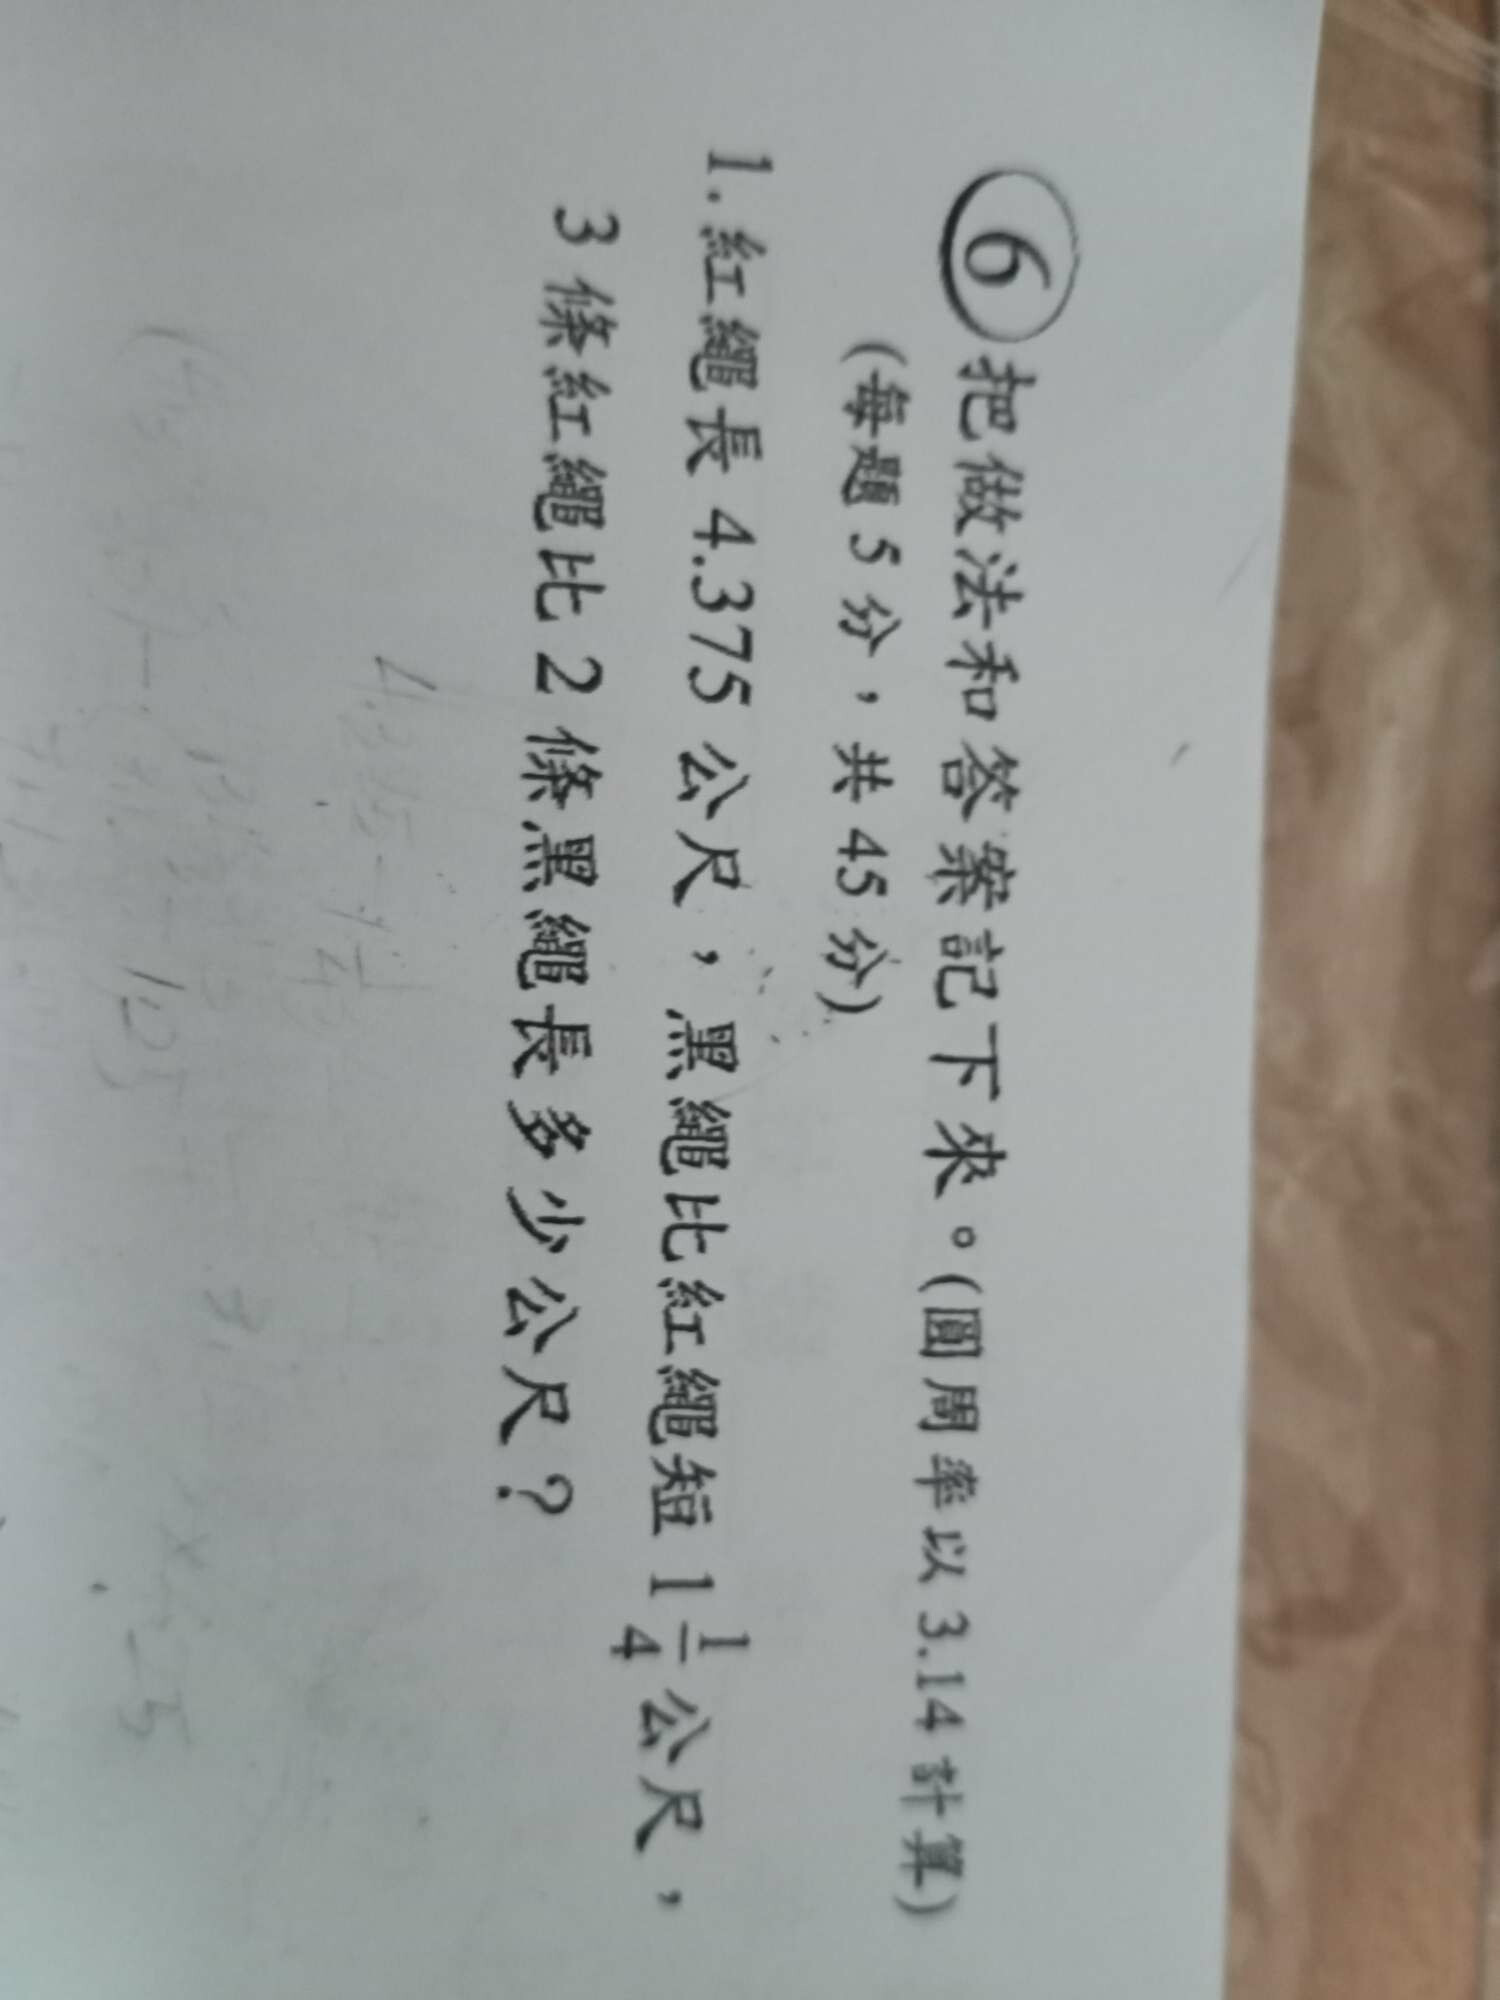 ⑥ 把做法和答案記下來。(圓周率以 3.14 計算)
(每題 5 分，共 45 分)
1. 紅繩長 4.375 公尺，黑繩比紅繩短 1 1/4 公尺，
3 條紅繩比 2 條黑繩長多少公尺？